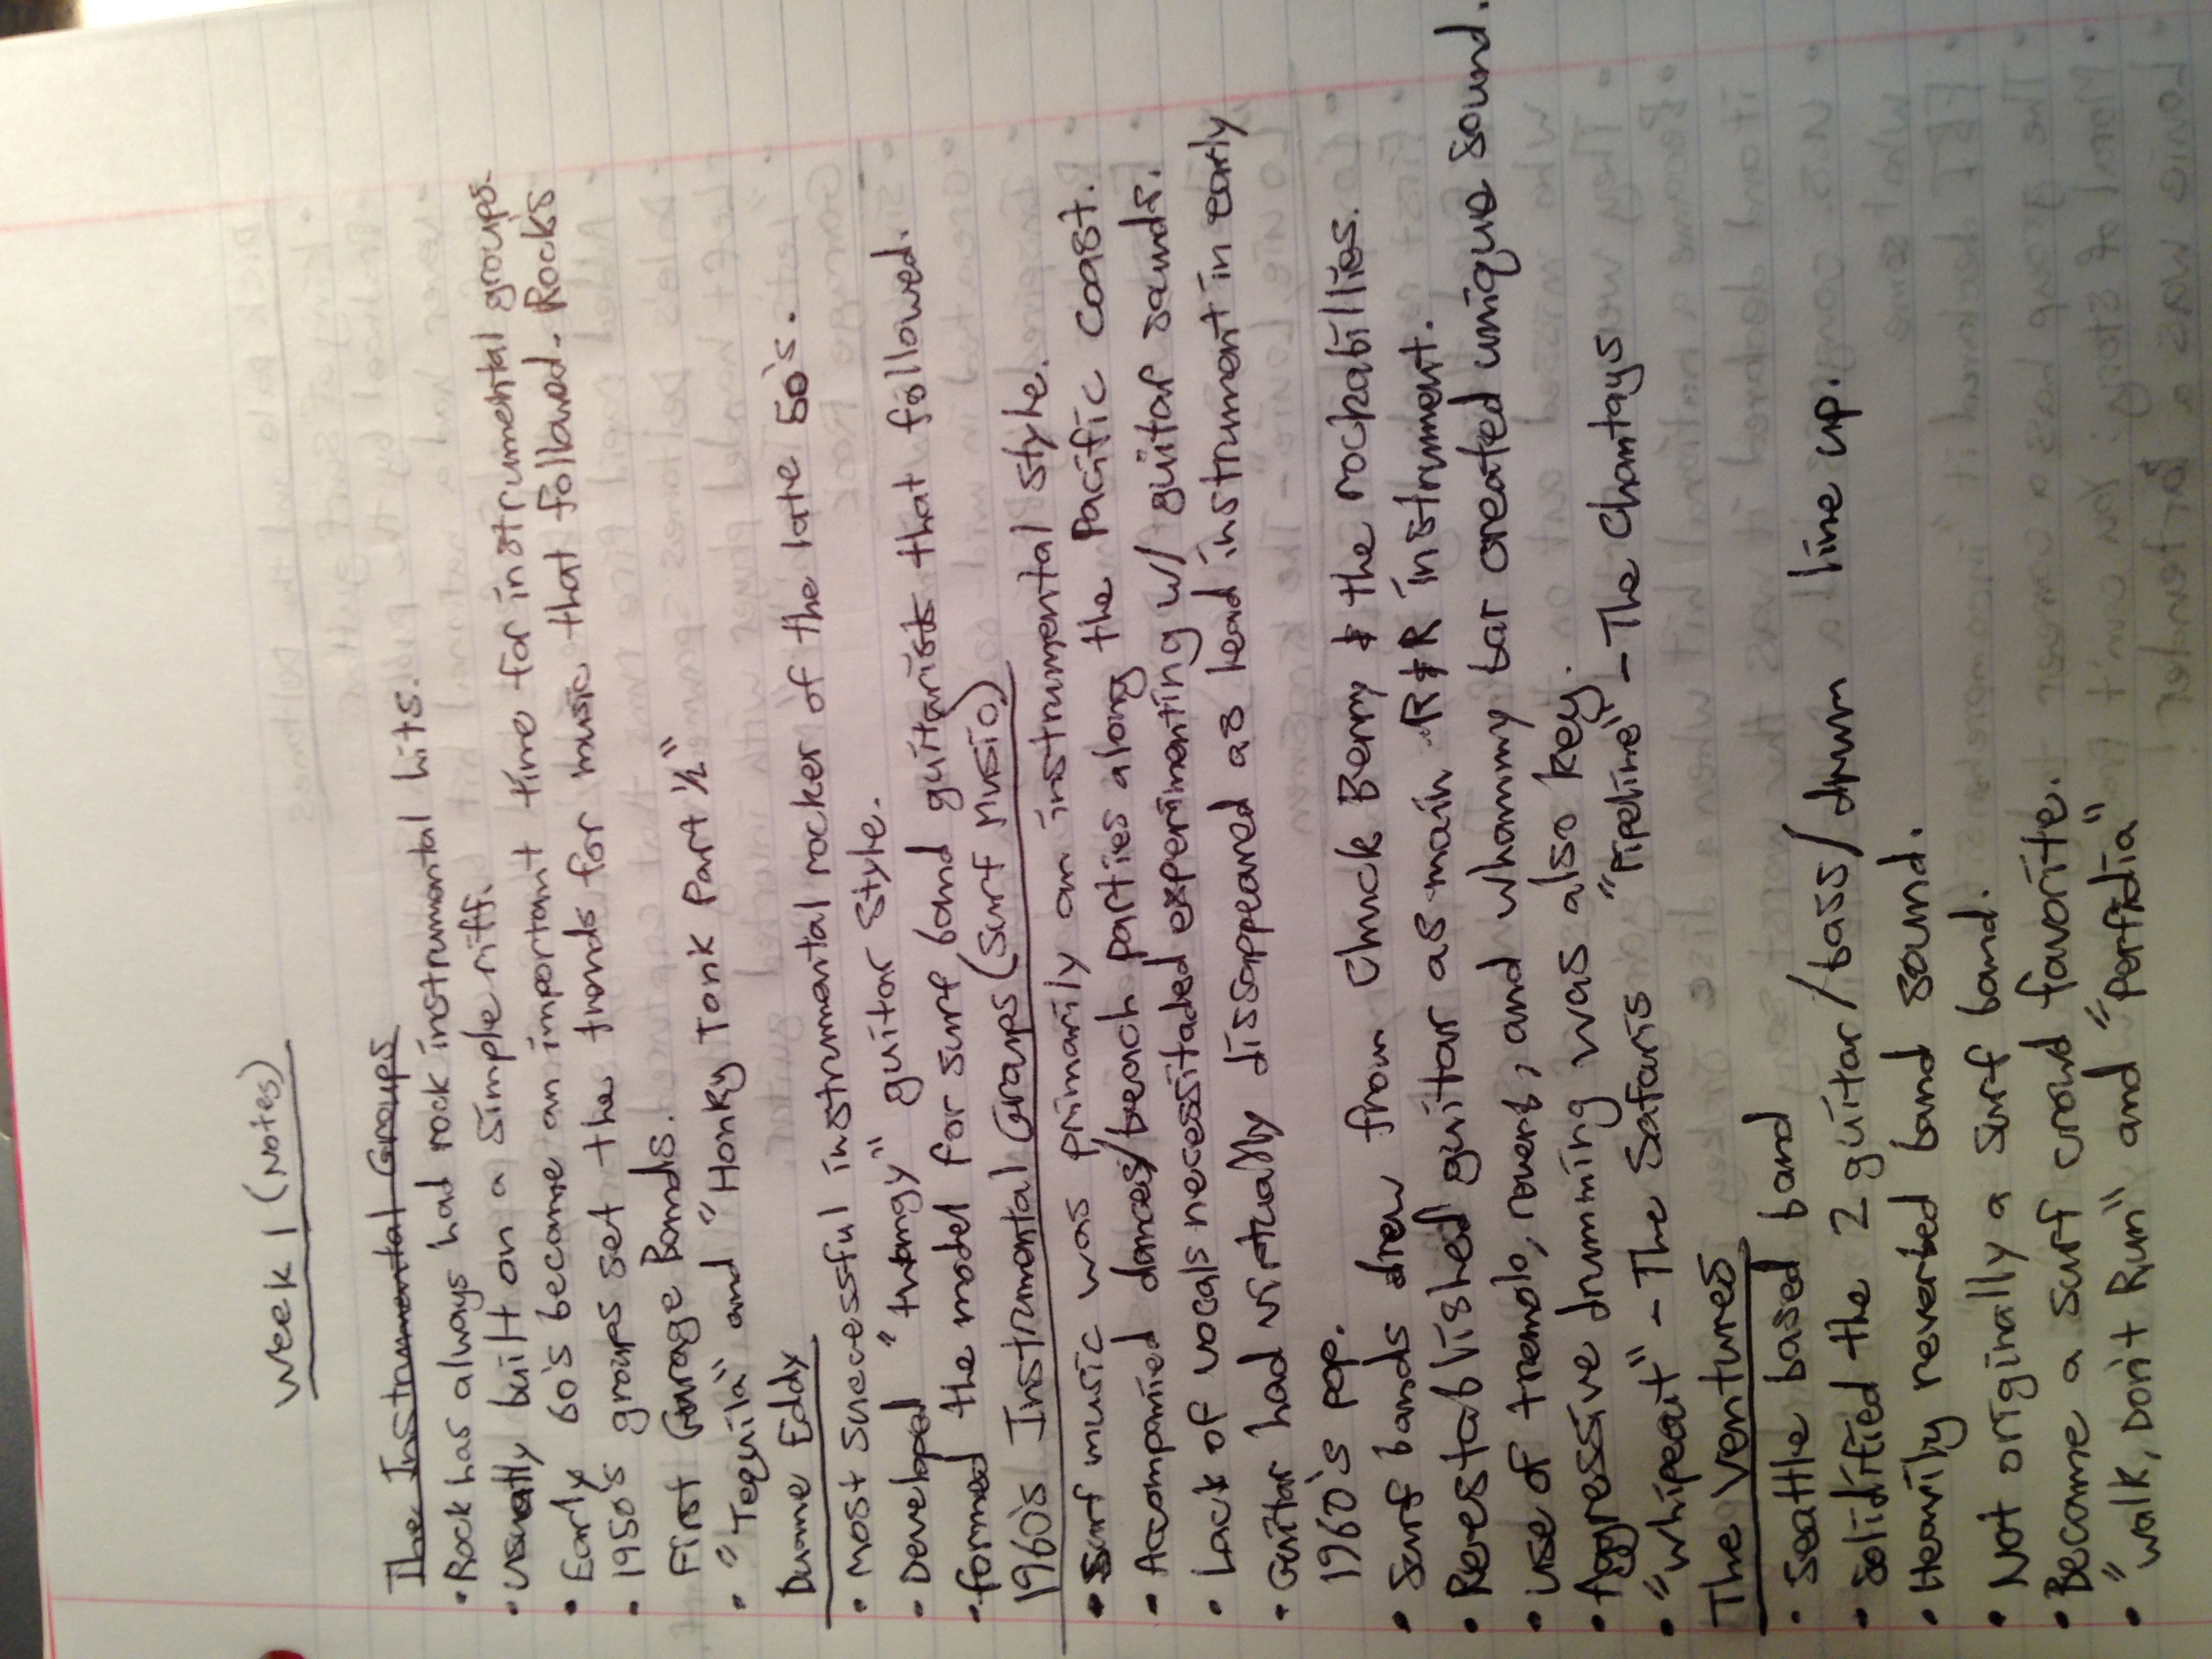 Week 1 (Notes)
The Instrumental Groups
• Rock has always had rock instrumental hits.
• Usually built on a simple riff.
• Early 60's become an important time for instrumental groups.
• 1950's groups set the trends for music that followed. Rocks
First Garage Bands.
• "Tequila" and "Honky Tonk Part ½"
Duane Eddy
• Most successful instrumental rocker of the late 50's.
• Developed "twangy" guitar style.
• formed the model for surf band guitarists that followed.
1960's Instrumental Groups (Surf Music)
• Surf music was primarily an instrumental style.
• Accompanied dances/beach parties along the Pacific coast.
• Lack of vocals necessitaded experimenting w/ guitar sounds.
• Guitar had virtually dissappeared as lead instrument in early
1960's pop.
• Surf bands drew from Chuck Berry & the rockabillies.
• Restablished guitar as main R&R instrument.
• Use of tremolo, reverb, and whammy bar created unique sound.
• Aggressive drumming was also key.
• "Whipeout" - The Safaris "Pipeline" - The Chantays
The Ventures
• Seattle based band
• Solidified the 2 guitar/bass/drum line up.
• Heavily reverbed band sound.
• Not originally a surf band.
• Became a surf crowd favorite.
• "Walk, Don't Run" and "Perfidia"